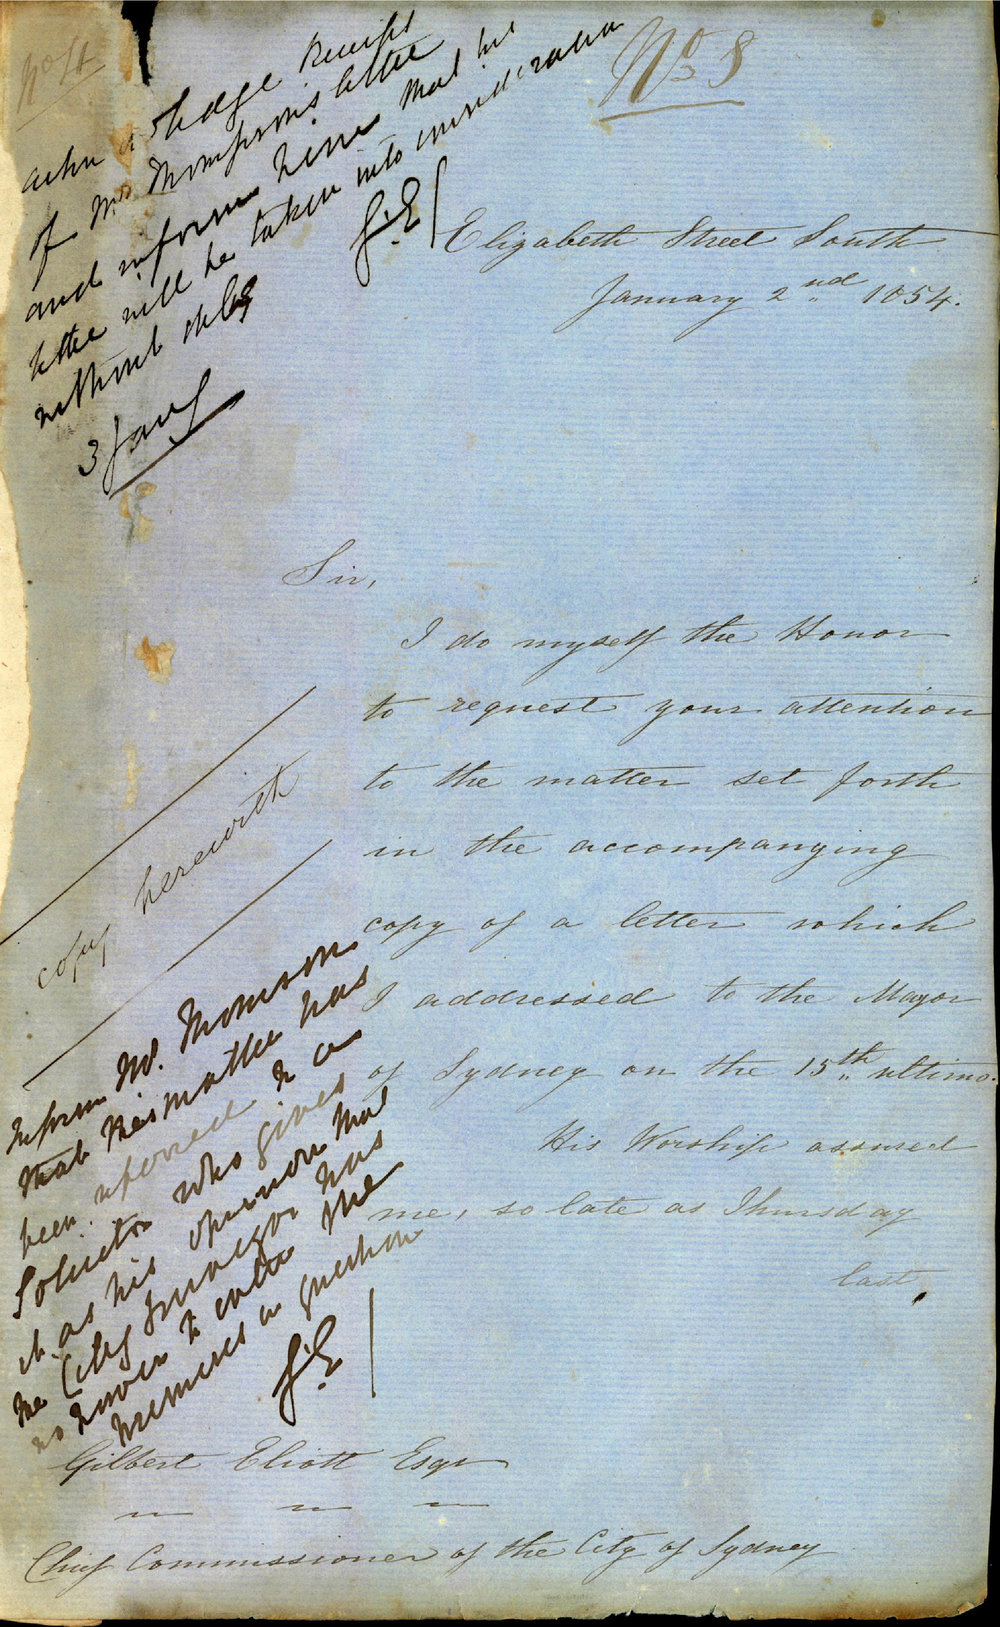 No 8
acknowledge Receipt
of Mr Thompson's letter
and inform him that his
letter will be taken into consideration
without delay
G.E
3 Jany
Elizabeth Street South
January 2nd 1854.
Sir,
I do myself the Honor
to request your attention
to the matter set forth
in the accompanying
copy of a letter which
I addressed to the Mayor
of Sydney on the 15th ultimo.
His Worship assured
me, so late as Thursday
last.
copy herewith
Inform Mr. Thomson
that this matter has
been referred to a
Solicitor who gives
it as his opinion that
the City Surveyor has
no power to enter the
premises in question
G.E
Gilbert Eliott Esqr
Chief Commissioner of the City of Sydney